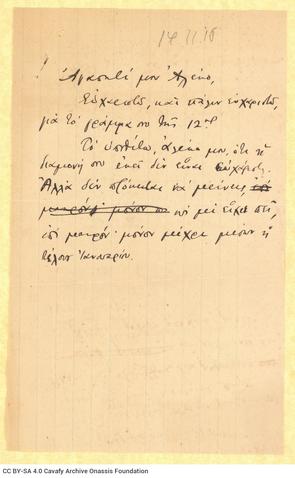 14.11.18
Αγαπητέ μου Αλέκο,
Ευχαριστώ, και πάλιν ευχαριστώ,
για το γράμμα σου της 12ης
Το υποθέτω, Αλέκο μου, ότι η
διαμονή σου εκεί δεν είναι ευχάριστη.
Αλλά δεν πρόκειται να μείνεις
επί μακρόν· μόνον μέχρι μέσων ή
τέλους Ιανουαρίου.
CC BY-SA 4.0 Cavafy Archive Onassis Foundation